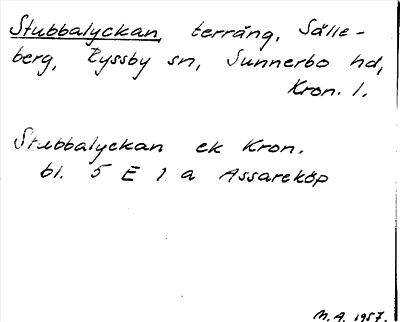 Stubbalyckan, terräng, Sälle-
berg, Ryssby sn, Sunnerbo hd,
Kron. l.
Stubbalyckan ek Kron.
bl. 5 E 1 a Assareköp
M. A. 1957.